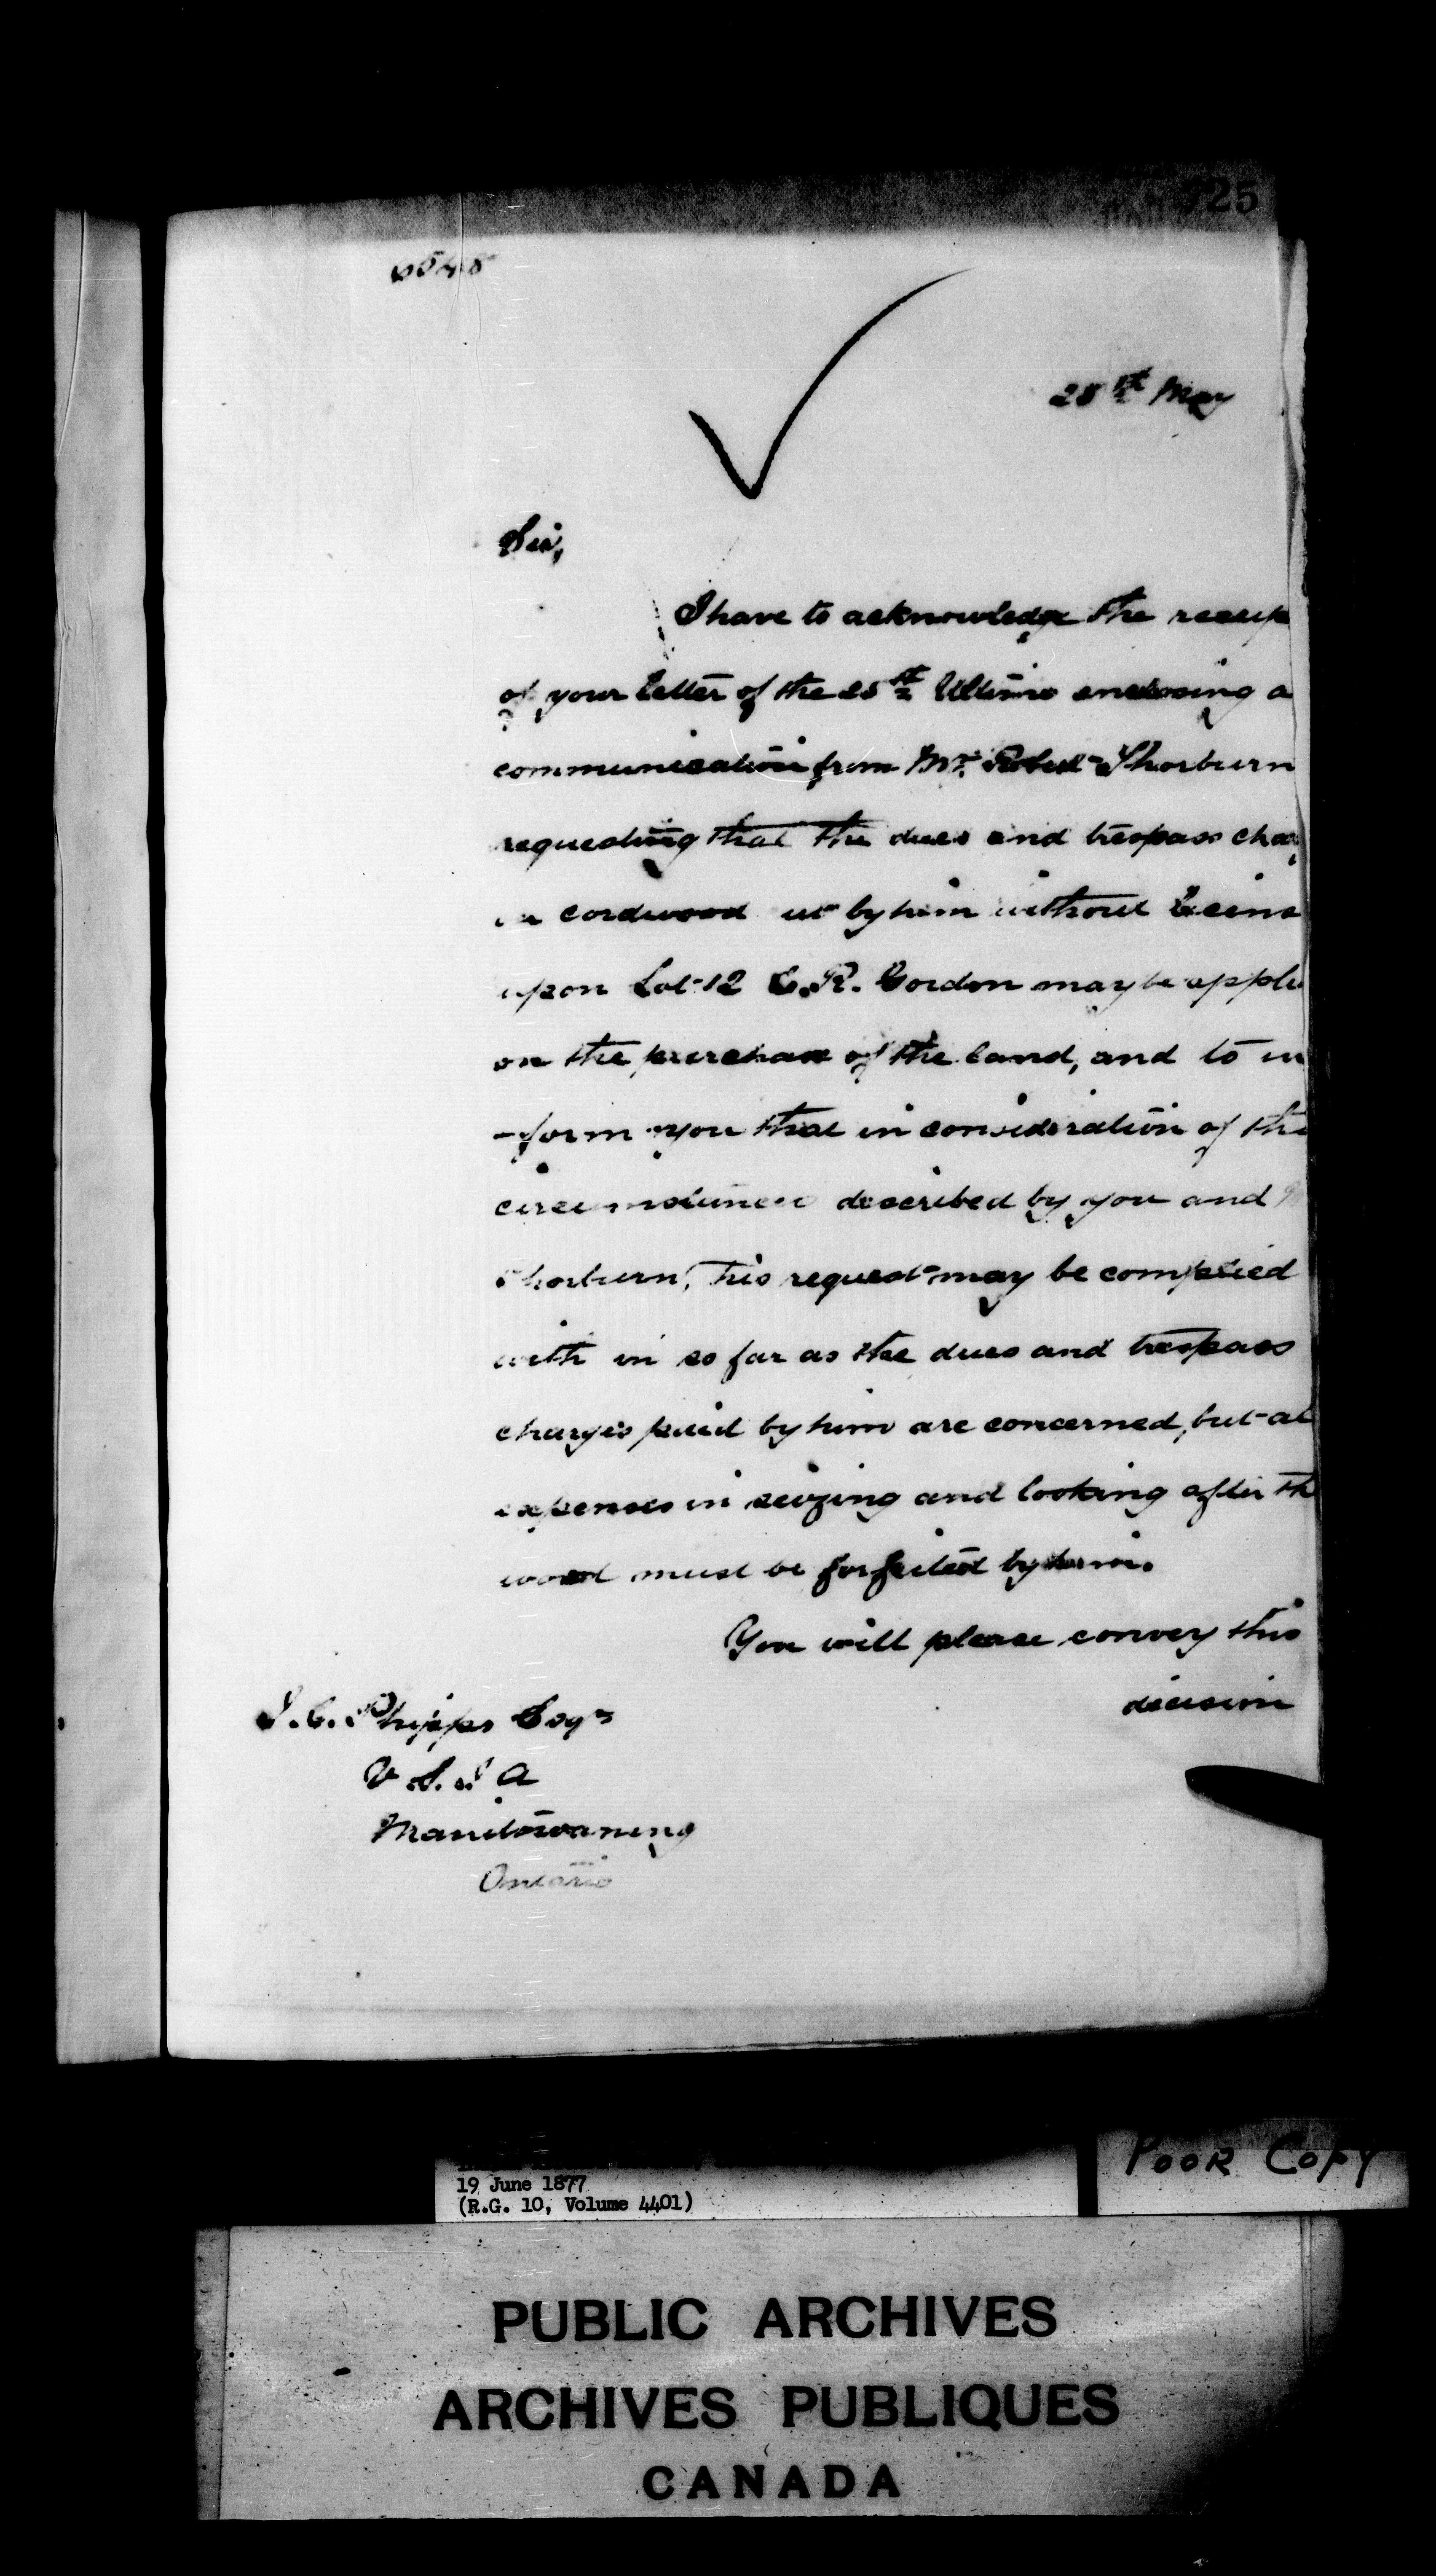 25
28th May
Sir,
I have to acknowledge the receip
of your letter of the 25th Ultimo enclosing a
communication from Mr. Robert Thorburn
requesting that the dues and trespass cha
cordwood ut by him without
upon Lot 12 E.R. Gordon may be appli
on the purchase of the land, and to in
-form you that in consideration of the
circumstances described by you and
Thorburn, his request may be complied
with in so far as the dues and trespass
charges paid by him are concerned, but al
expenses in seizing and looking after th
wood must be forfeited by him.
You will please convey this
decision
J.C. Phipps Esqre
V. S. I. A
Manitowaning
Ontario
19 June 1877
(R.G. 10, Volume 4401)
POOR COPY
PUBLIC ARCHIVES
ARCHIVES PUBLIQUES
CANADA